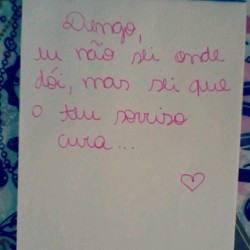 Dengo,
eu não sei onde
dói, mas sei que
o teu sorriso
cura...